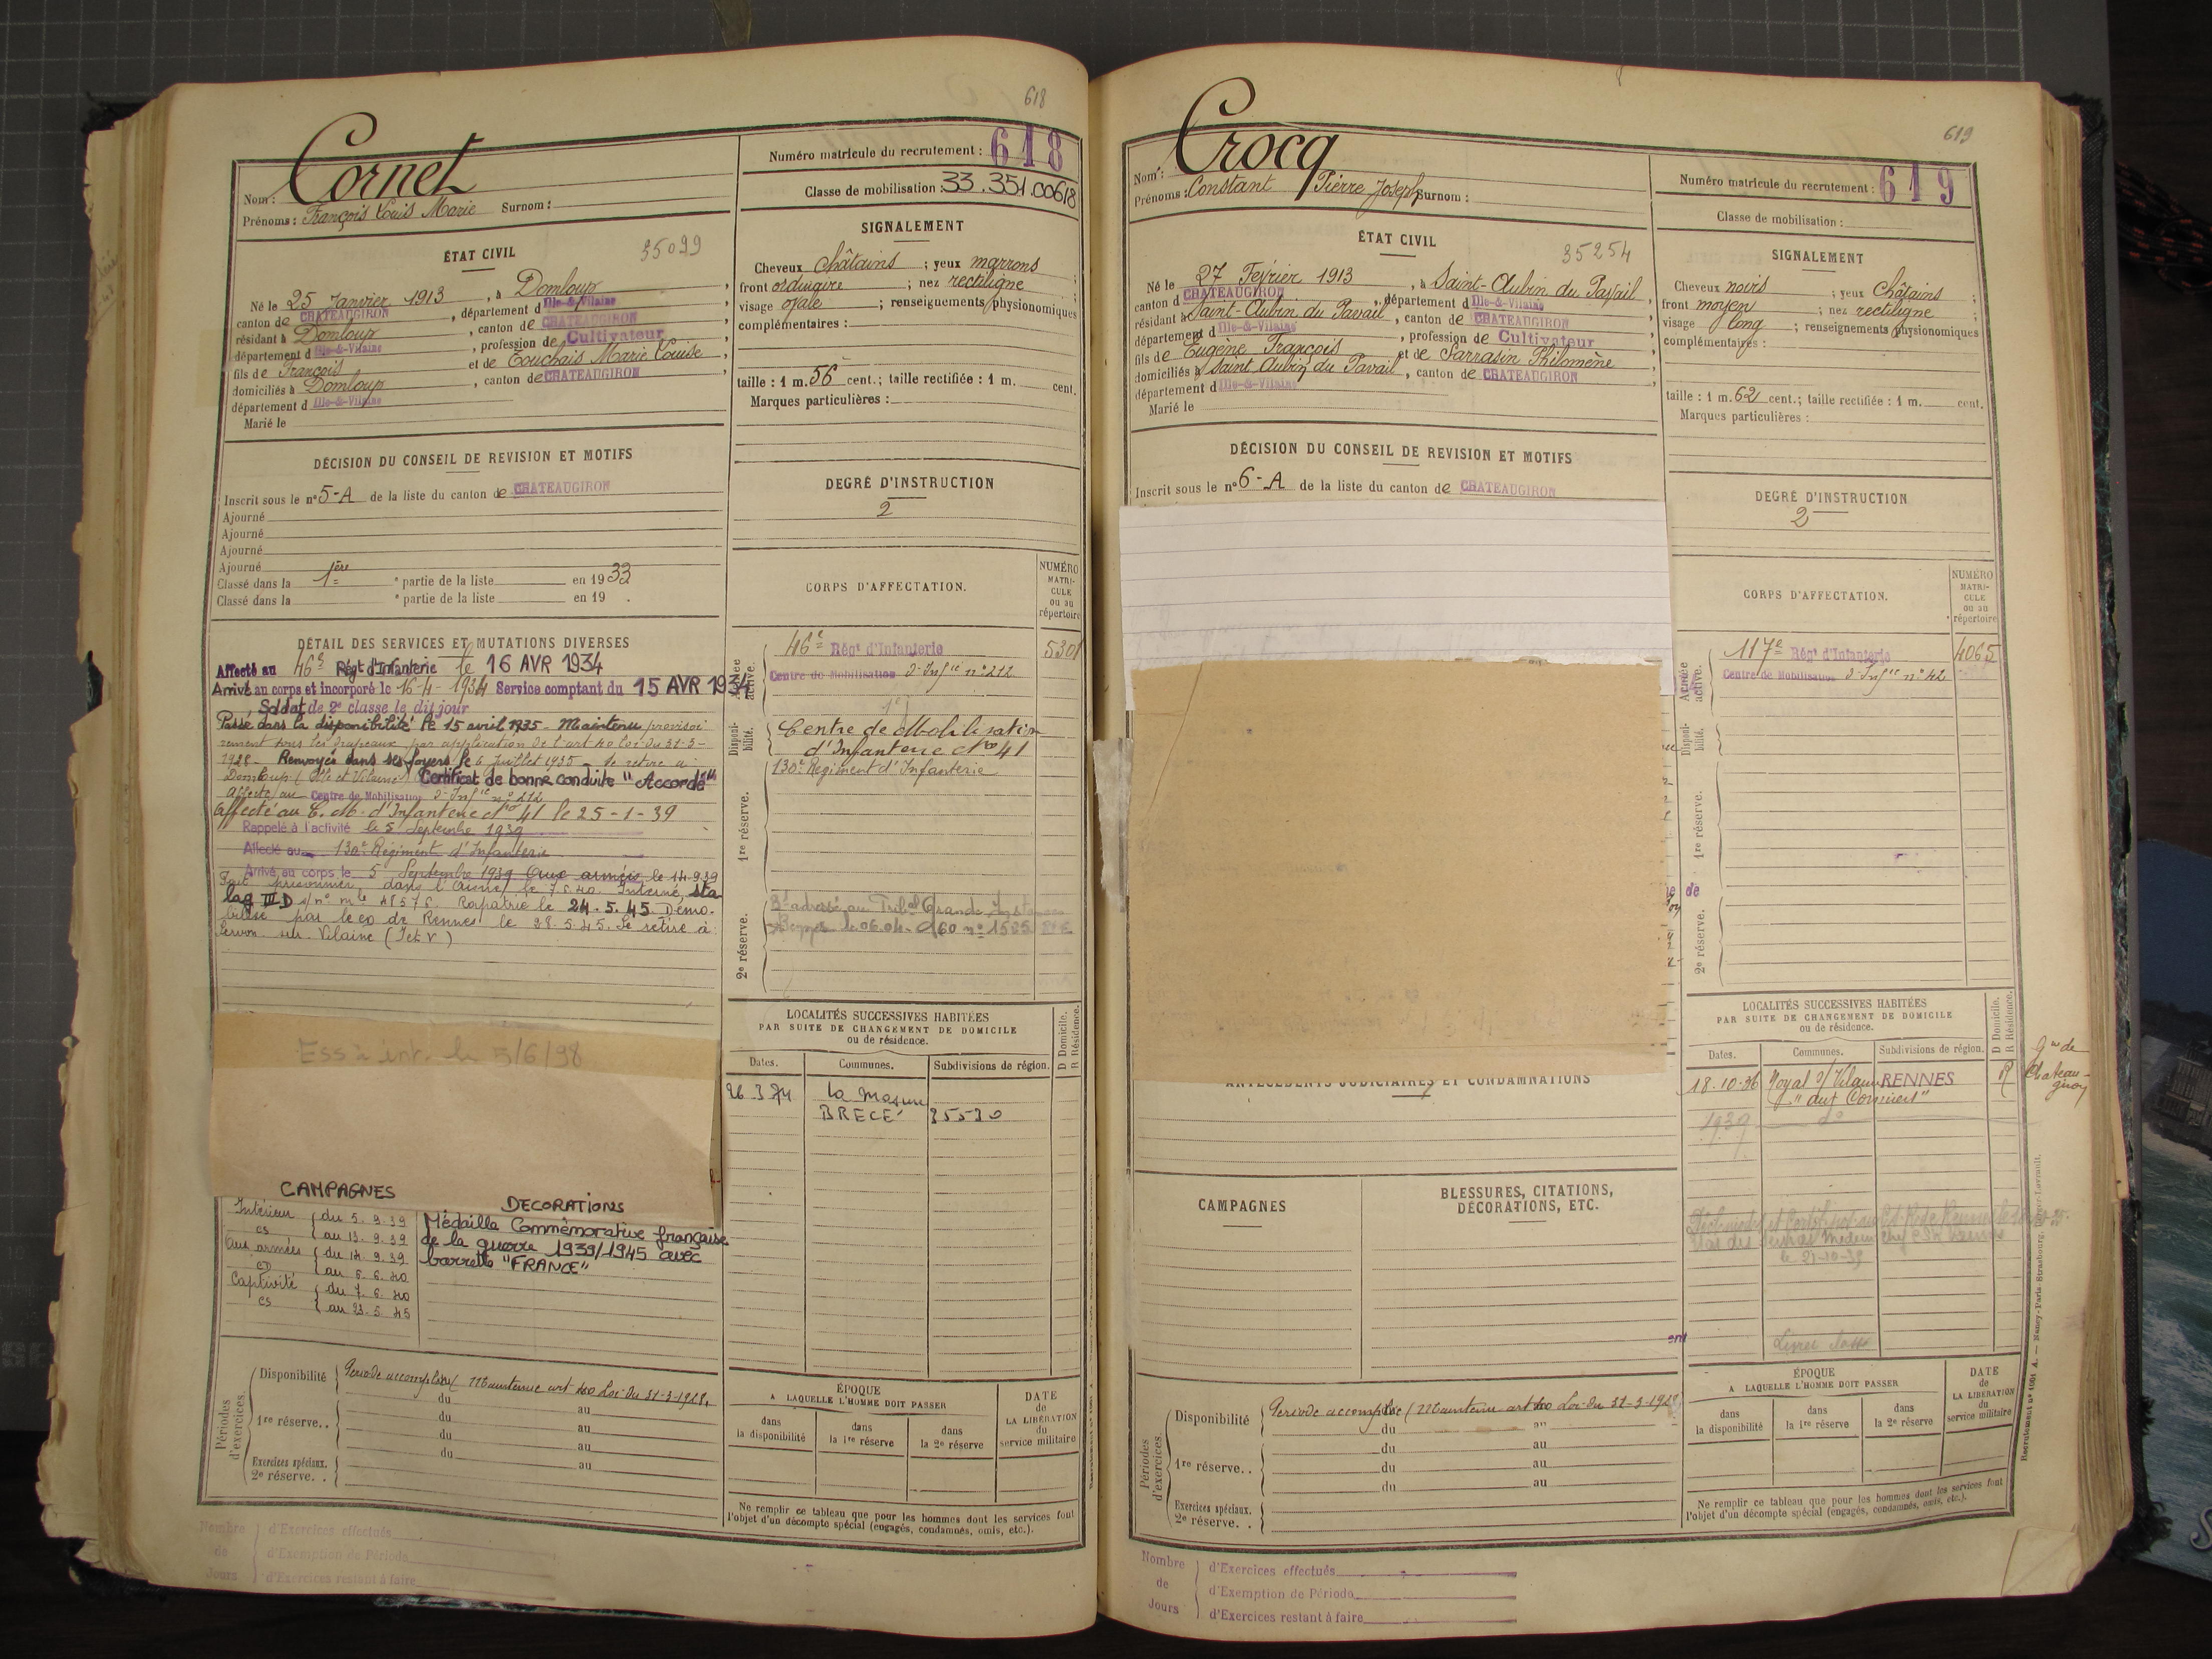 618
Nom : Cornet
Prénoms : François Louis Marie Surnom :
Numéro matricule du recrutement : 618
Classe de mobilisation : 33.351.00618
ÉTAT CIVIL
35099
Né le 25 Janvier 1913, à Domloup,
canton de CHATEAUGIRON, département d Ille-&-Vilaine
résidant à Domloup, canton de CHATEAUGIRON,
département d Ille-&-Vilaine, profession de Cultivateur,
fils de François et de Touchais Marie Louise,
domiciliés à Domloup, canton de CHATEAUGIRON,
département d Ille-&-Vilaine
Marié le
SIGNALEMENT
Cheveux châtains ; yeux marrons ;
front ordinaire ; nez rectiligne ;
visage ovale ; renseignements physionomiques
complémentaires :
taille : 1 m. 56 cent. ; taille rectifiée : 1 m. cent.
Marques particulières :
DÉCISION DU CONSEIL DE REVISION ET MOTIFS
Inscrit sous le n° 5-A de la liste du canton de CHATEAUGIRON
Ajourné
Ajourné
Ajourné
Ajourné
Classé dans la 1ère partie de la liste en 1933
Classé dans la partie de la liste en 19 .
DEGRÉ D'INSTRUCTION
2
DÉTAIL DES SERVICES ET MUTATIONS DIVERSES
Affecté au 46e Régt d'Infanterie le 16 AVR 1934
Arrivé au corps et incorporé le 16-4-1934 Service comptant du 15 AVR 1934
Soldat de 2e classe le dit jour
Passé dans la disponibilité le 15 avril 1935 - Maintenu provisoi
rement sous les drapeaux par application de l'art 40 loi du 31-3-
1928 - Renvoyé dans ses foyers le 6 juillet 1935 - Se retire à
Domloup (Ille et Vilaine) Certificat de bonne conduite "Accordé"
Affecté au Centre de Mobilisation d'Infie n° 212
Affecté au C. M. d'Infanterie No 41 le 25-1-39
Rappelé à l'activité le 5 Septembre 1939
Affecté au 130e Régiment d'Infanterie
Arrivé au corps le 5 Septembre 1939 Aux armées le 14.9.39
Fait prisonnier dans l'Aisne le 7.6.40. Interné sta
lag III D s/n° mle 48576. Rapatrié le 24.5.45. Démo.
bilisé par le co de Rennes le 28.5.45. Se retire à
Servon sur Vilaine (I et V)
Ess à int. le 5/6/98
CORPS D'AFFECTATION.
NUMÉRO MATRI-CULE ou au répertoire
Armée active.
46e Régt d'Infanterie 5301
Centre de Mobilisation d'Infie n° 212
Disponi-bilité.
Centre de Mobilisation
d'Infanterie No 41
130e Régiment d'Infanterie
1re réserve.
2e réserve.
LOCALITÉS SUCCESSIVES HABITÉES
PAR SUITE DE CHANGEMENT DE DOMICILE
ou de résidence.
D Domicile.
R Résidence.
Dates. Communes. Subdivisions de région.
26.3.74 La Masure
BRECÉ 35530
CAMPAGNES
Intérieur du 5.9.39
CS au 13.9.39
Aux armées du 14.9.39
CD au 6.6.40
Captivité du 7.6.40
CS au 23.5.45
DECORATIONS
Médaille Commémorative française
de la guerre 1939/1945 avec
barrette "FRANCE"
Périodes d'exercices.
Disponibilité Période accomplie (Maintenue art 40 Loi du 31-3-1928.
du au
1re réserve.. du au
du au
du au
Exercices spéciaux.
2e réserve. .
ÉPOQUE
A LAQUELLE L'HOMME DOIT PASSER
dans la disponibilité
dans la 1re réserve
dans la 2e réserve
DATE de LA LIBÉRATION du service militaire
Ne remplir ce tableau que pour les hommes dont les services font
l'objet d'un décompte spécial (engagés, condamnés, omis, etc.).
Nombre de Jours
d'Exercices effectués
d'Exemption de Période
d'Exercices restant à faire
619
Nom : Crocq
Prénoms : Constant Pierre Joseph Surnom :
Numéro matricule du recrutement : 619
Classe de mobilisation :
ÉTAT CIVIL
35254
Né le 27 Février 1913, à Saint-Aubin du Pavail
canton d CHATEAUGIRON, département d Ille-&-Vilaine
résidant à Saint-Aubin du Pavail, canton de CHATEAUGIRON
département d Ille-&-Vilaine, profession de Cultivateur,
fils de Eugène François et de Sarrasin Philomène,
domiciliés à Saint Aubin du Pavail, canton de CHATEAUGIRON,
département d Ille-&-Vilaine
Marié le
SIGNALEMENT
Cheveux noirs ; yeux châtains ;
front moyen ; nez rectiligne ;
visage long ; renseignements physionomiques
complémentaires :
taille : 1 m. 62 cent. ; taille rectifiée : 1 m. cent.
Marques particulières :
DÉCISION DU CONSEIL DE REVISION ET MOTIFS
Inscrit sous le n° 6-A de la liste du canton de CHATEAUGIRON
DEGRÉ D'INSTRUCTION
2
CORPS D'AFFECTATION.
NUMÉRO MATRI-CULE ou au répertoire
Armée active.
117e Régt d'Infanterie 4065
Centre de Mobilisation d'Infie n° 42
Disponi-bilité.
1re réserve.
2e réserve.
LOCALITÉS SUCCESSIVES HABITÉES
PAR SUITE DE CHANGEMENT DE DOMICILE
ou de résidence.
D Domicile.
R Résidence.
Dates. Communes. Subdivisions de région.
18.10.36 Noyal s/ Vilaine RENNES R Gie de Chateaugiron
1939 do
le 21-10-39
ANTÉCÉDENTS JUDICIAIRES ET CONDAMNATIONS
CAMPAGNES
BLESSURES, CITATIONS,
DÉCORATIONS, ETC.
Périodes d'exercices.
Disponibilité Période accomplie (Maintenue art 40 Loi du 31-3-1928)
du au
du au
1re réserve.. du au
du au
Exercices spéciaux.
2e réserve. .
ÉPOQUE
A LAQUELLE L'HOMME DOIT PASSER
dans la disponibilité
dans la 1re réserve
dans la 2e réserve
DATE de LA LIBÉRATION du service militaire
Ne remplir ce tableau que pour les hommes dont les services font
l'objet d'un décompte spécial (engagés, condamnés, omis, etc.).
Nombre de Jours
d'Exercices effectués
d'Exemption de Période
d'Exercices restant à faire